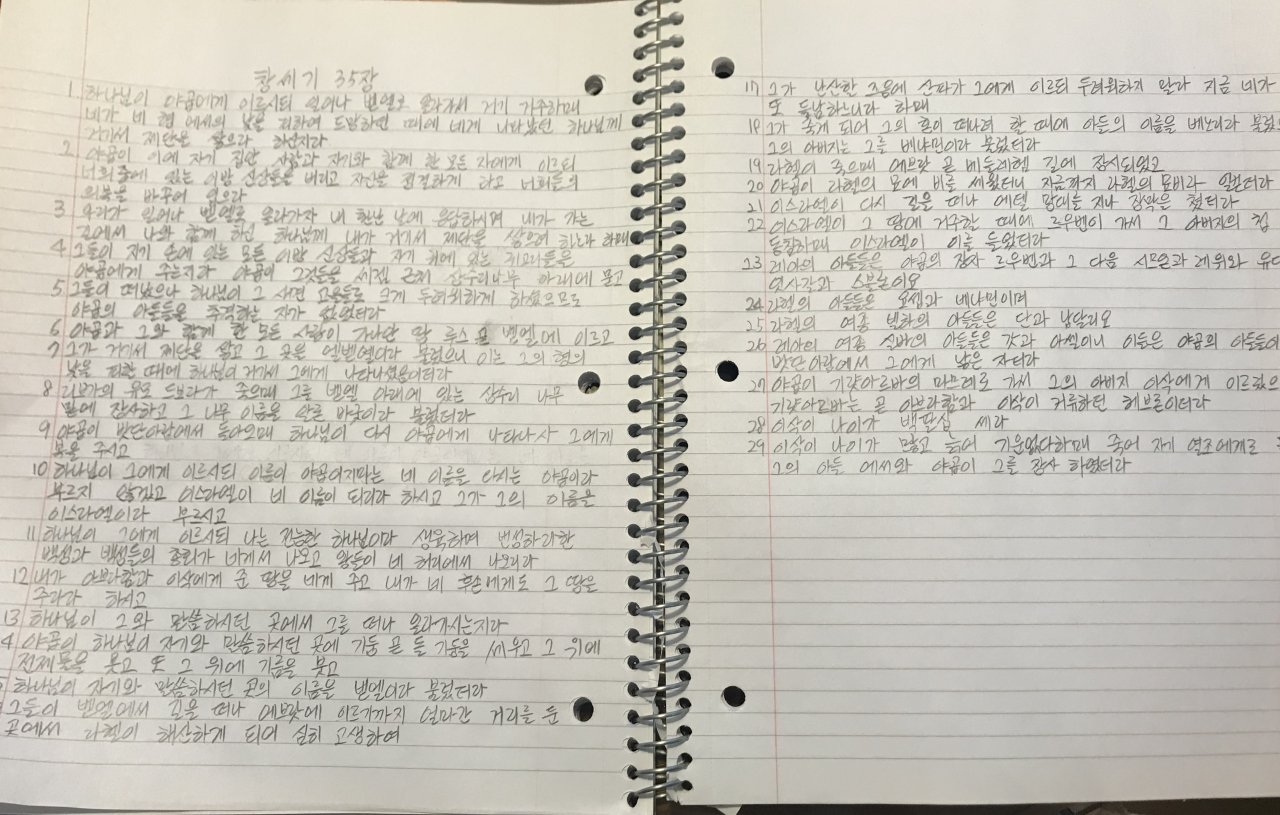 창세기 35장
1 하나님이 야곱에게 이르시되 일어나 벧엘로 올라가서 거기 거주하며
네가 네 형 에서의 낯을 피하여 도망하던 때에 네게 나타났던 하나님께
거기서 제단을 쌓으라 하신지라
2 야곱이 이에 자기 집안 사람과 자기와 함께 한 모든 자에게 이르되
너희 중에 있는 이방 신상들을 버리고 자신을 정결하게 하고 너희들의
의복을 바꾸어 입으라
3 우리가 일어나 벧엘로 올라가자 내 환난 날에 응답하시며 내가 가는
길에서 나와 함께 하신 하나님께 내가 거기서 제단을 쌓으려 하노라 하매
4 그들이 자기 손에 있는 모든 이방 신상들과 자기 귀에 있는 귀고리들을
야곱에게 주는지라 야곱이 그것들을 세겜 근처 상수리나무 아래에 묻고
5 그들이 떠났으나 하나님이 그 사면 고을들로 크게 두려워하게 하셨으므로
야곱의 아들들을 추격하는 자가 없었더라
6 야곱과 그와 함께 한 모든 사람이 가나안 땅 루스 곧 벧엘에 이르고
7 그가 거기서 제단을 쌓고 그 곳을 엘벧엘이라 불렀으니 이는 그의 형의
낯을 피할 때에 하나님이 거기서 그에게 나타나셨음이더라
8 리브가의 유모 드보라가 죽으매 그를 벧엘 아래에 있는 상수리 나무
밑에 장사하고 그 나무 이름을 알론 바굿이라 불렀더라
9 야곱이 밧단아람에서 돌아오매 하나님이 다시 야곱에게 나타나사 그에게
복을 주시고
10 하나님이 그에게 이르시되 이름이 야곱이지마는 네 이름을 다시는 야곱이라
부르지 않겠고 이스라엘이 네 이름이 되리라 하시고 그가 그의 이름을
이스라엘이라 부르시고
11 하나님이 그에게 이르시되 나는 전능한 하나님이라 생육하며 번성하라 한
백성과 백성들의 총회가 네게서 나오고 왕들이 네 허리에서 나오리라
12 내가 아브라함과 이삭에게 준 땅을 네게 주고 내가 네 후손에게도 그 땅을
주리라 하시고
13 하나님이 그와 말씀하시던 곳에서 그를 떠나 올라가시는지라
4 야곱이 하나님이 자기와 말씀하시던 곳에 기둥 곧 돌 기둥을 세우고 그 위에
전제물을 붓고 또 그 위에 기름을 붓고
하나님이 자기와 말씀하시던 곳의 이름을 벧엘이라 불렀더라
그들이 벧엘에서 길을 떠나 에브랏에 이르기까지 얼마간 거리를 둔
곳에서 라헬이 해산하게 되어 심히 고생하여
17 그가 난산할 즈음에 산파가 그에게 이르되 두려워하지 말라 지금 네가
또 득남하느니라 하매
18 그가 죽게 되어 그의 혼이 떠나려 할 때에 아들의 이름을 베노니라 불렀으
그의 아버지는 그를 베냐민이라 불렀더라
19 라헬이 죽으매 에브랏 곧 베들레헴 길에 장사되었고
20 야곱이 라헬의 묘에 비를 세웠더니 지금까지 라헬의 묘비라 일컫더라
21 이스라엘이 다시 길을 떠나 에델 망대를 지나 장막을 쳤더라
22 이스라엘이 그 땅에 거주할 때에 르우벤이 가서 그 아버지의 첩
동침하매 이스라엘이 이를 들었더라
23 레아의 아들들은 야곱의 장자 르우벤과 그 다음 시므온과 레위와 유다
잇사갈과 스불론이요
24 라헬의 아들들은 요셉과 베냐민이며
25 라헬의 여종 빌하의 아들들은 단과 납달리요
26 레아의 여종 실바의 아들들은 갓과 아셀이니 이들은 야곱의 아들들이
밧단아람에서 그에게 낳은 자더라
27 야곱이 기럇아르바의 마므레로 가서 그의 아버지 이삭에게 이르렀으
기럇아르바는 곧 아브라함과 이삭이 거류하던 헤브론이더라
28 이삭이 나이가 백팔십 세라
29 이삭이 나이가 많고 늙어 기운없다하매 죽어 자기 열조에게로
그의 아들 에서와 야곱이 그를 장사 하였더라